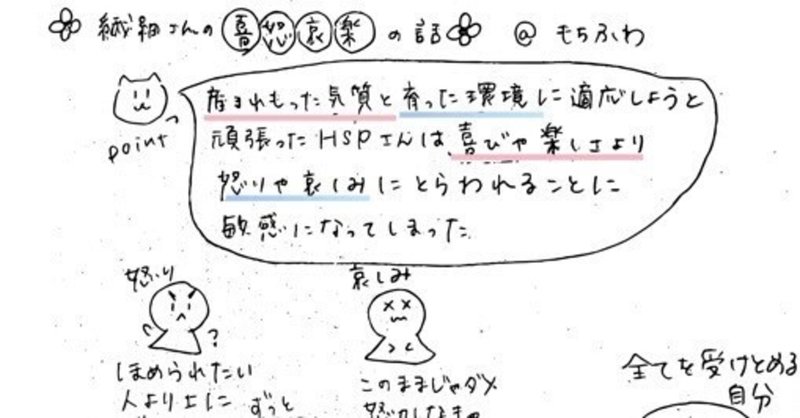 繊細さんの喜怒哀楽の話 @もちふわ
point
産まれもった気質と育った環境に適応しようと
頑張ったHSPさんは、喜びや楽しさより
怒りや哀しみにとらわれることに
敏感になってしまった
怒り
?
ほめられたい
人より上に
ずっと
哀しみ
このままじゃダメ
全てを受けとめる
自分